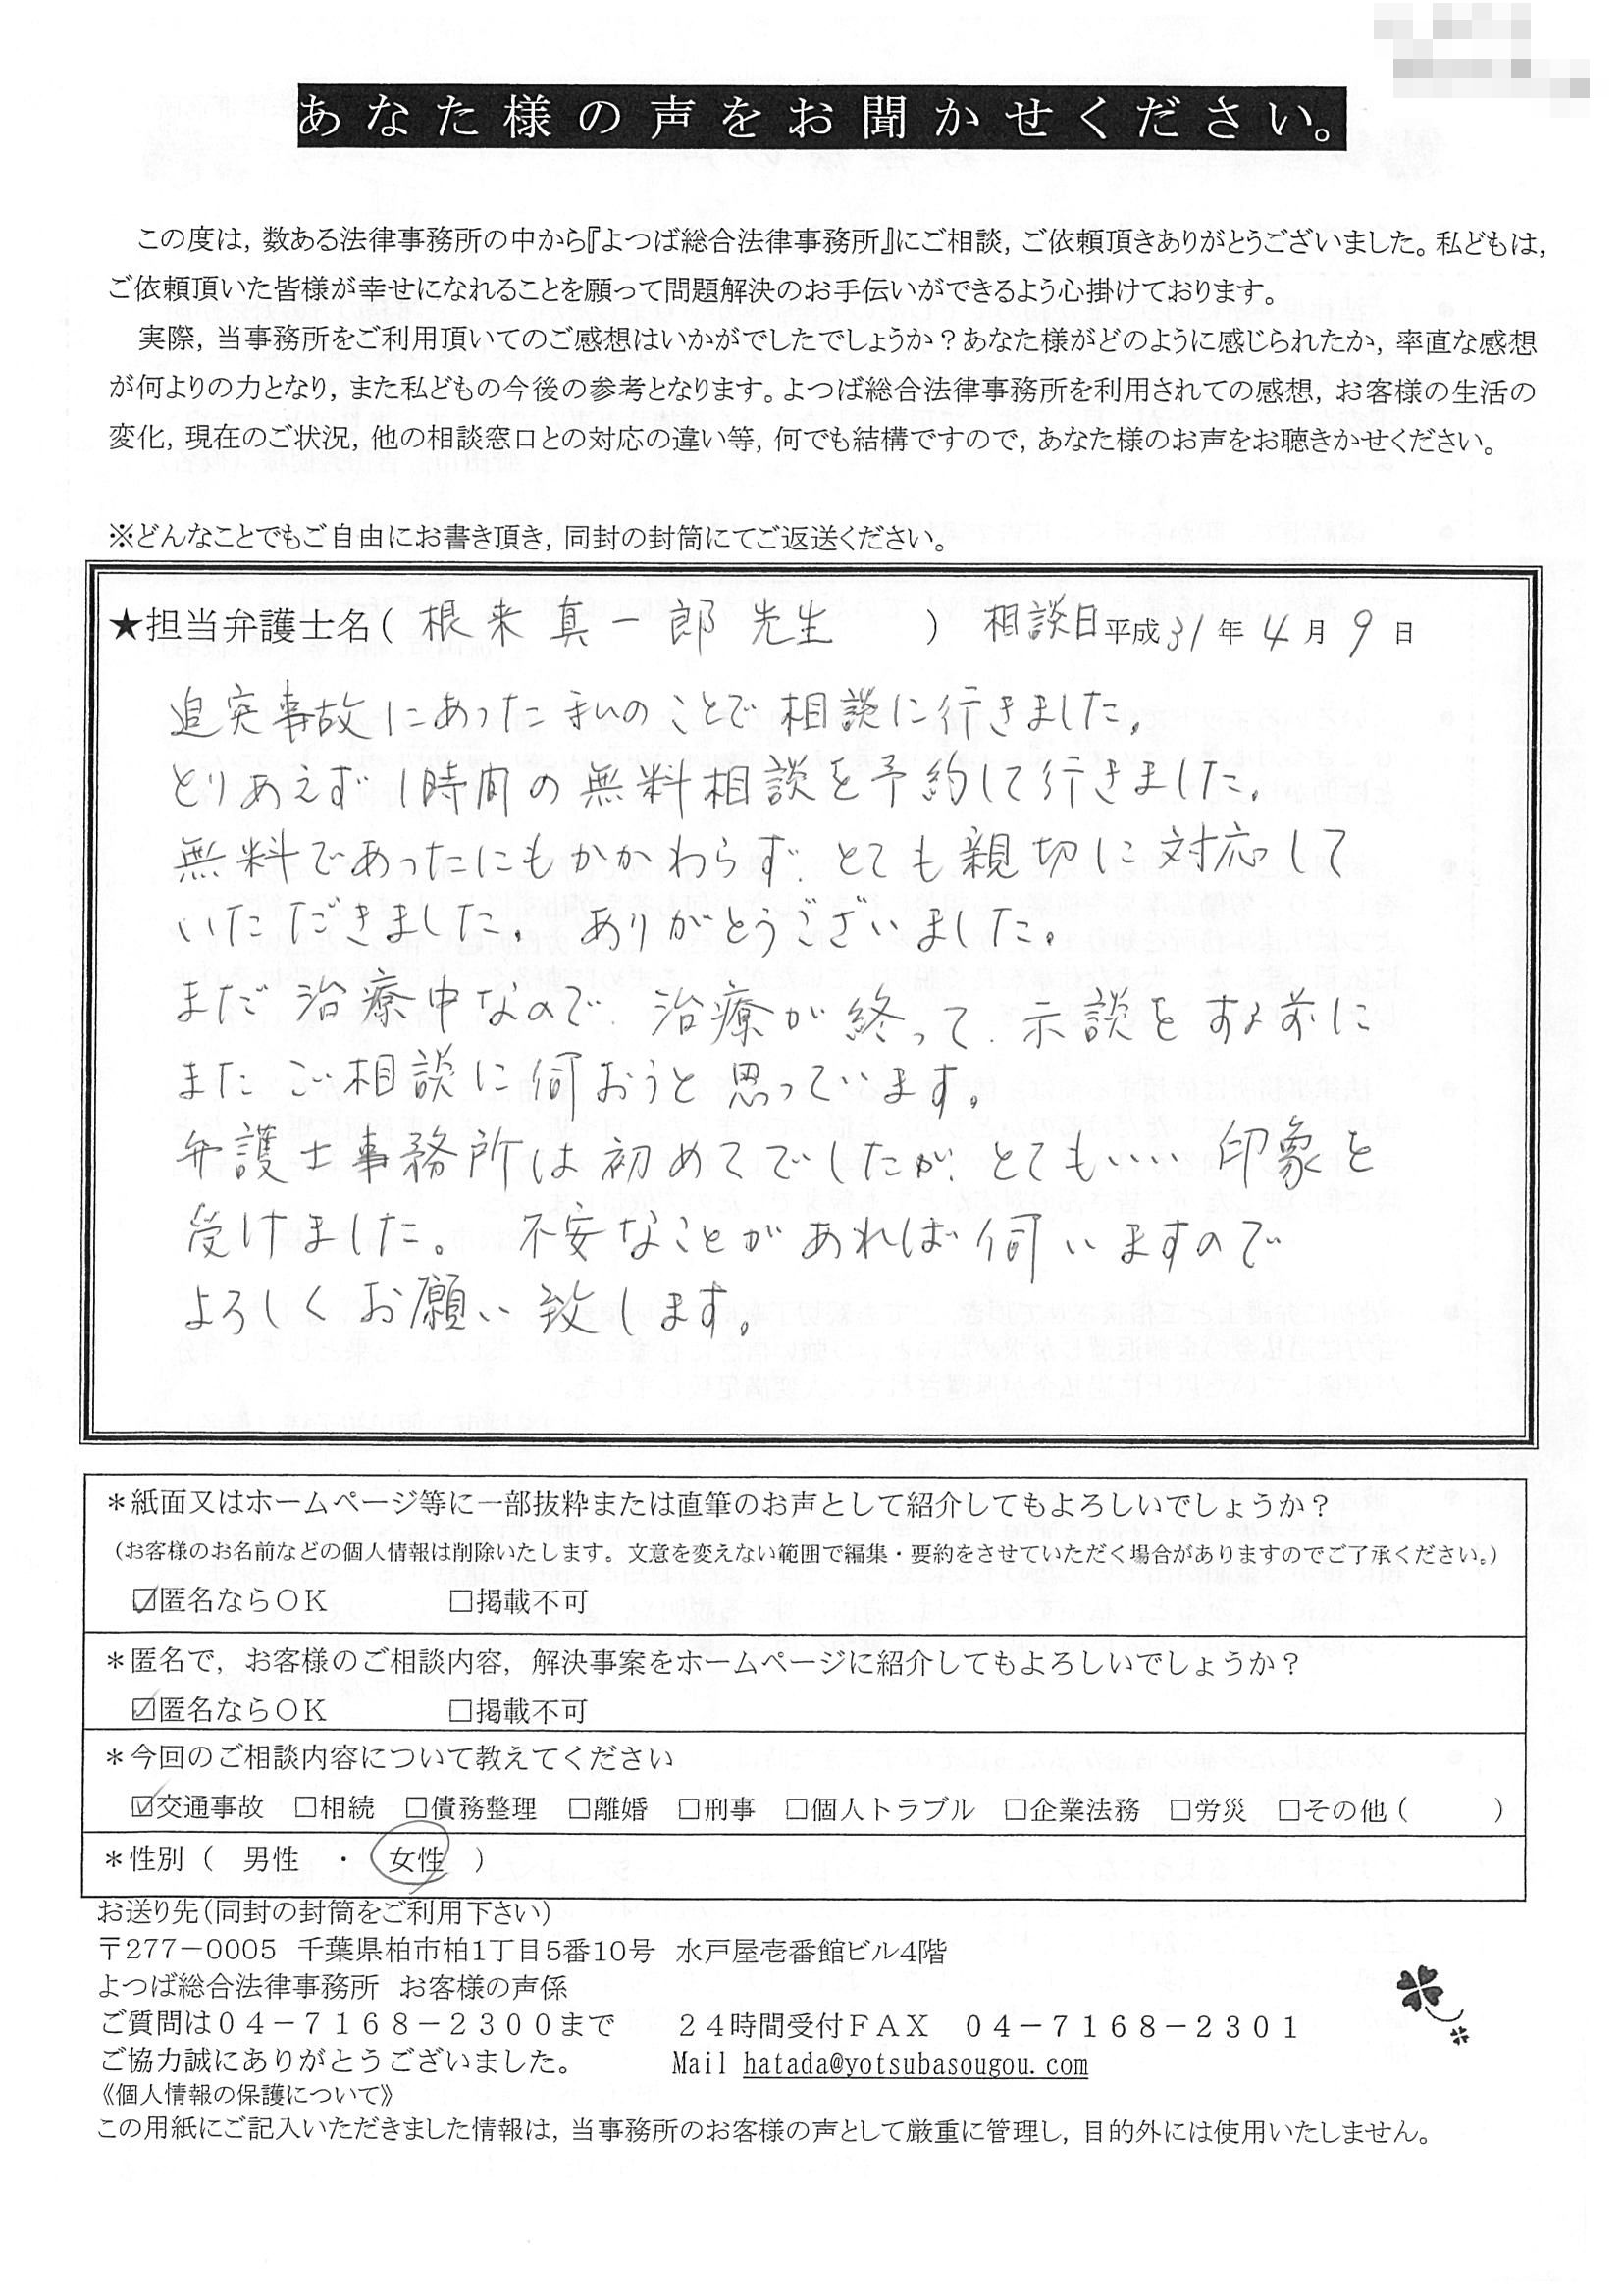 あなた様の声をお聞かせください。
この度は，数ある法律事務所の中から『よつば総合法律事務所』にご相談，ご依頼頂きありがとうございました。私どもは，
ご依頼頂いた皆様が幸せになれることを願って問題解決のお手伝いができるよう心掛けております。
実際，当事務所をご利用頂いてのご感想はいかがでしたでしょうか？あなた様がどのように感じられたか，率直な感想
が何よりの力となり，また私どもの今後の参考となります。よつば総合法律事務所を利用されての感想，お客様の生活の
変化，現在のご状況，他の相談窓口との対応の違い等，何でも結構ですので，あなた様のお声をお聴きかせください。
※どんなことでもご自由にお書き頂き，同封の封筒にてご返送ください。
★担当弁護士名（ 根来 真一郎 先生 ） 相談日 平成 31 年 4 月 9 日
追突事故にあった 私いのことで 相談に行きました。
とりあえず 1時間の無料相談を予約して行きました。
無料であったにもかかわらず、とても親切に対応して
いただきました。ありがとうございました。
まだ治療中なので、治療が終って、示談をする前に
またご相談に伺おうと思っています。
弁護士事務所は初めてでしたが、とてもいい印象を
受けました。不安なことがあれば伺いますので
よろしくお願い致します。
＊紙面又はホームページ等に一部抜粋または直筆のお声として紹介してもよろしいでしょうか？
（お客様のお名前などの個人情報は削除いたします。文意を変えない範囲で編集・要約をさせていただく場合がありますのでご了承ください。）
☑匿名ならＯＫ □掲載不可
＊匿名で，お客様のご相談内容，解決事案をホームページに紹介してもよろしいでしょうか？
☑匿名ならＯＫ □掲載不可
＊今回のご相談内容について教えてください
☑交通事故 □相続 □債務整理 □離婚 □刑事 □個人トラブル □企業法務 □労災 □その他（ ）
＊性別（ 男性 ・ 女性 ）
お送り先（同封の封筒をご利用下さい）
〒277－0005 千葉県柏市柏1丁目5番10号 水戸屋壱番館ビル4階
よつば総合法律事務所 お客様の声係
ご質問は０４－７１６８－２３００まで ２４時間受付ＦＡＸ ０４－７１６８－２３０１
ご協力誠にありがとうございました。 Mail hatada@yotsubasougou.com
《個人情報の保護について》
この用紙にご記入いただきました情報は，当事務所のお客様の声として厳重に管理し，目的外には使用いたしません。